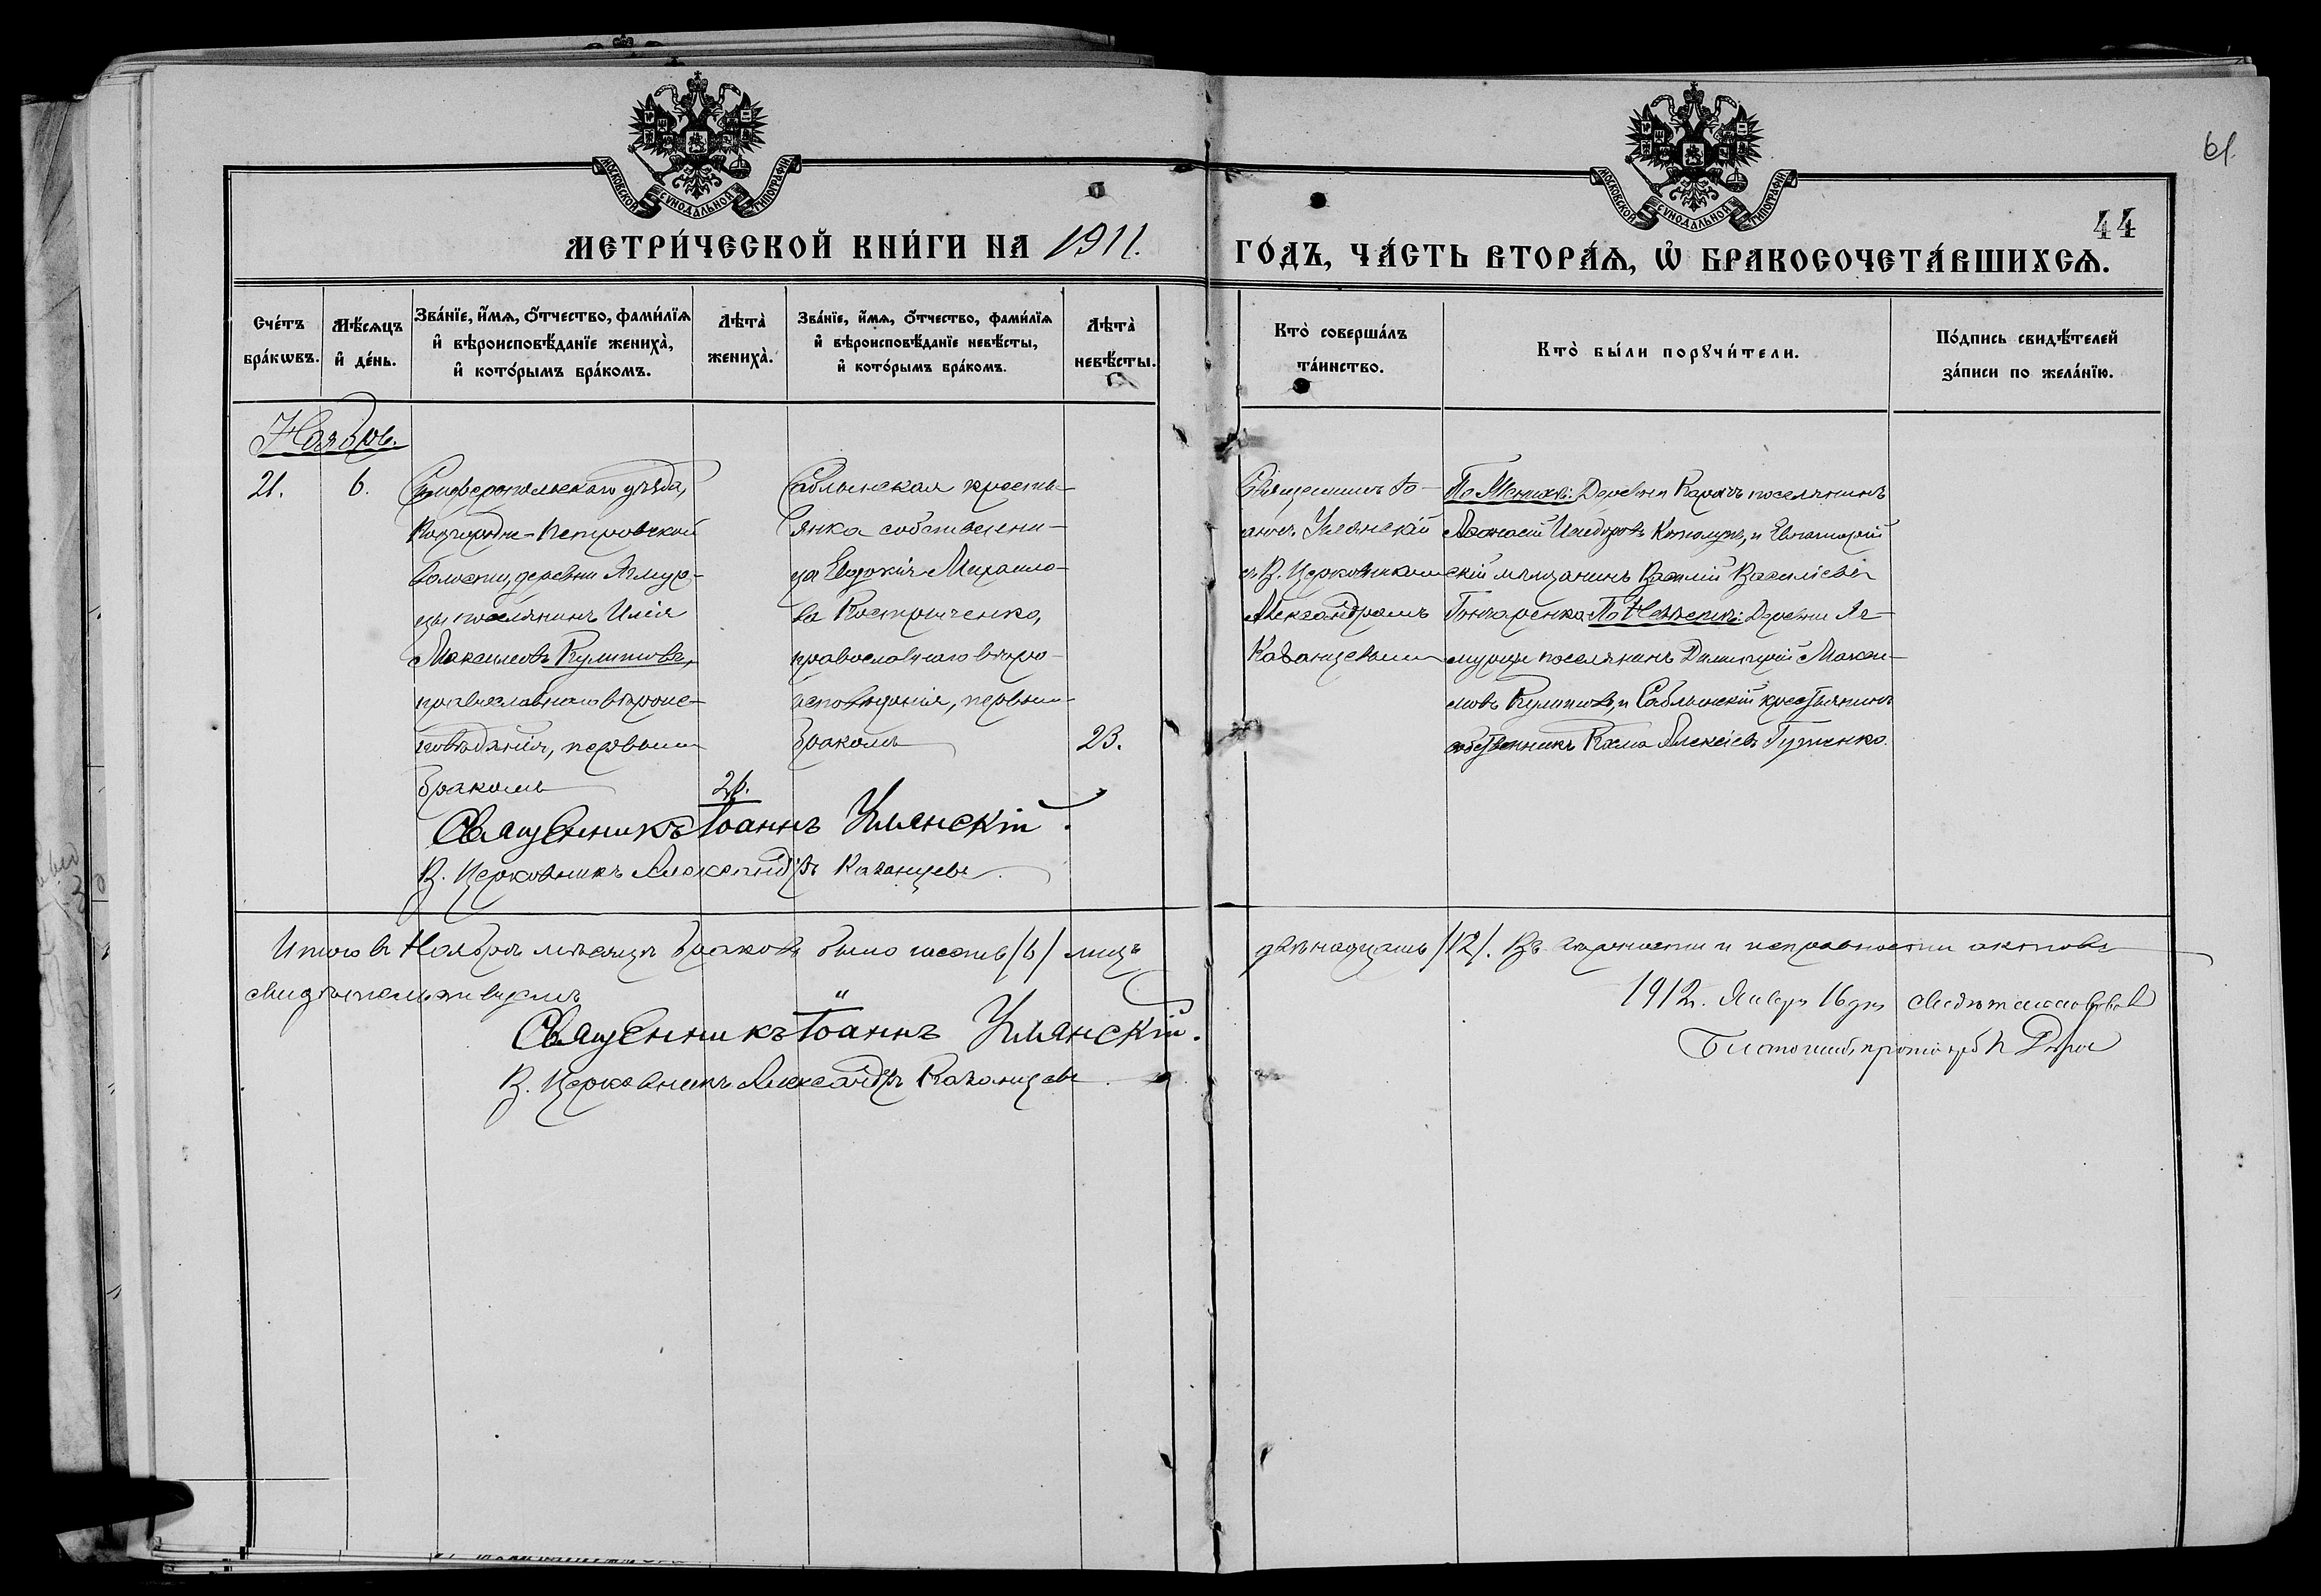 61.
44
МОСКОВСКОЙ СѴНОДАЛЬНОЙ ТИПОГРАФІИ
МОСКОВСКОЙ СѴНОДАЛЬНОЙ ТИПОГРАФІИ
МЕТРИ́ЧЕСКОЙ КНИ́ГИ НА 1911. ГО́ДЪ, ЧА́СТЬ ВТОРА́Ѧ, Ѡ҆ БРАКОСОЧЕТА́ВШИХСѦ.
Сче́тъ
бра́кѡвъ.
Мѣ́сѧцъ
и҆ де́нь.
Зва́нїе, и҆́мѧ, ѻ҆́тчество, фами́лїѧ
и҆ вѣроисповѣ́данїе жениха̀,
и҆ кото́рымъ бра́комъ.
Лѣта̀
жениха̀.
Зва́нїе, и҆́мѧ, ѻ҆́тчество, фами́лїѧ
и҆ вѣроисповѣ́данїе невѣ́сты,
и҆ кото́рымъ бра́комъ.
Лѣта̀
невѣ́сты.
Кто̀ соверша́лъ
та́инство.
Кто̀ бы́ли порꙋчи́тели.
По́дпись свидѣ́телей
за́писи по жела́нїю.
Ноябрь.
21.
6.
Симферопольскаго уѣзда,
Подгородне-Петровской
волости, деревни
поселянинъ Илія
Максимовъ Кулишовъ,
православнаго вѣроис-
повѣданія, первымъ
бракомъ
26.
Саблынская кресть-
янка собственни-
ца Евдокія Михаило-
ва Костюченко,
православнаго вѣро-
исповѣданія, первымъ
бракомъ
23.
Священникъ Іо-
аннъ Улянскій
съ В. Церковникомъ
Александромъ
Казанцевымъ
По Женихѣ: Деревни Карачъ поселянинъ
Аѳанасій Исидоровъ и Евпаторій-
скій мѣщанинъ Василій Васильевъ
Гончаренко. По Невѣстѣ: Деревни
поселянинъ Димитрій Макси-
мовъ Кулишовъ, и Саблынскій крестьянинъ
собственникъ Алексіевъ Гуженко.
Священникъ Іоаннъ Улянскій.
В. Церковникъ Александръ Казанцевъ.
Итого въ Ноябрѣ мѣсяцѣ браковъ было шесть /6/ лицъ двѣнадцать /12/. Въ вѣрности и исправности актовъ
свидѣтельствуемъ
Священникъ Іоаннъ Улянскій.
В. Церковникъ Александръ Казанцевъ.
1912 г. Января 16 дня свидѣтельствовалъ